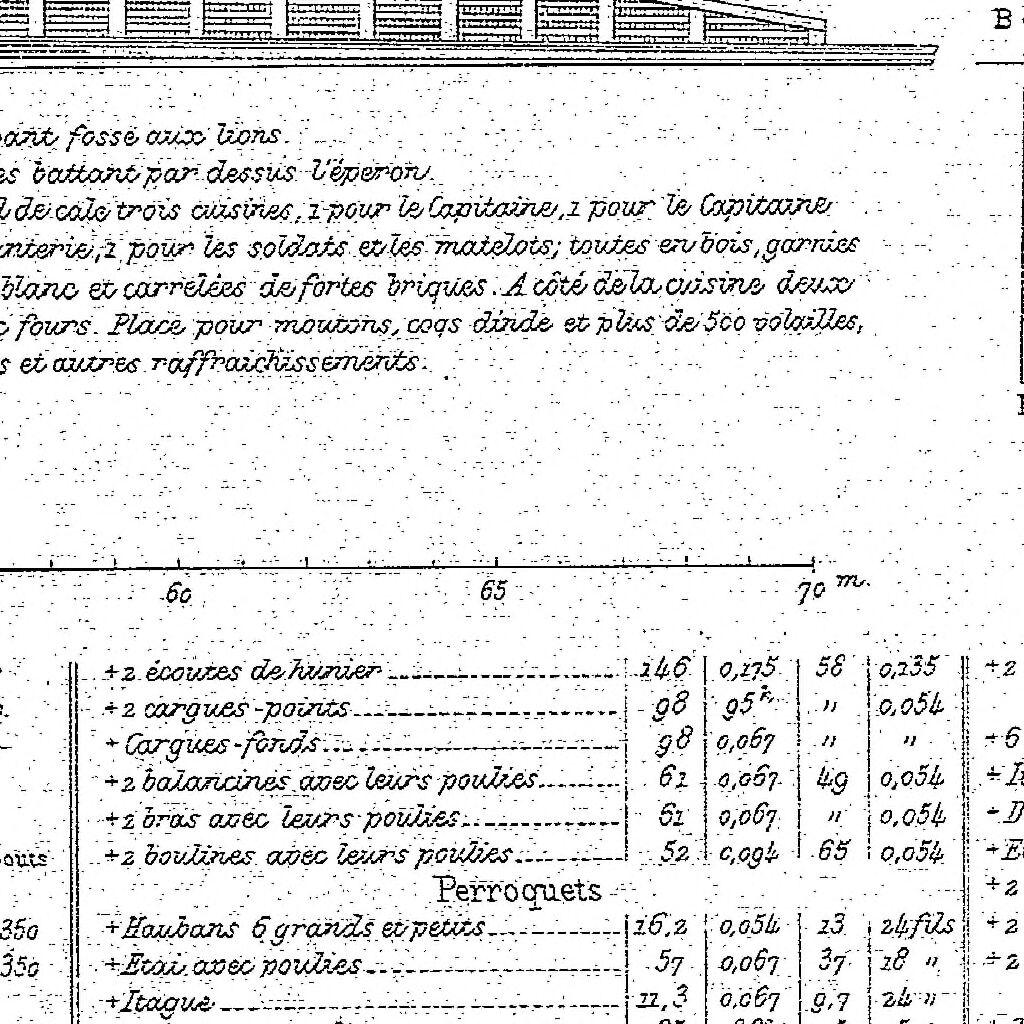 B
ant fosse aux lions.
es battant par dessus l'éperon.
l de cale trois cuisines, 1 pour le Capitaine, 1 pour le Capitaine
nterie, 1 pour les soldats et les matelots; toutes en bois, garnies
blanc et carrelées de fortes briques. A côté de la cuisine deux
fours. Place pour moutons, coqs dinde et plus de 500 volailles,
s et autres raffraichissements.
60 65 70 m.
+2 écoutes de hunier 146 0,175 58 0,135 +2
+2 cargues-points 98 95 " 0,054
+Cargues-fonds 98 0,067 " " +6
+2 balancines avec leurs poulies 61 0,067 49 0,054
+2 bras avec leurs poulies 61 0,067 " 0,054 +D
outs +2 boulines avec leurs poulies 52 0,094 65 0,054 +E
Perroquets +2
350 +Haubans 6 grands et petits 16,2 0,054 13 24 fils +2
350 +Etai avec poulies 57 0,067 37 18 " +2
+Itague 11,3 0,067 9,7 24 "